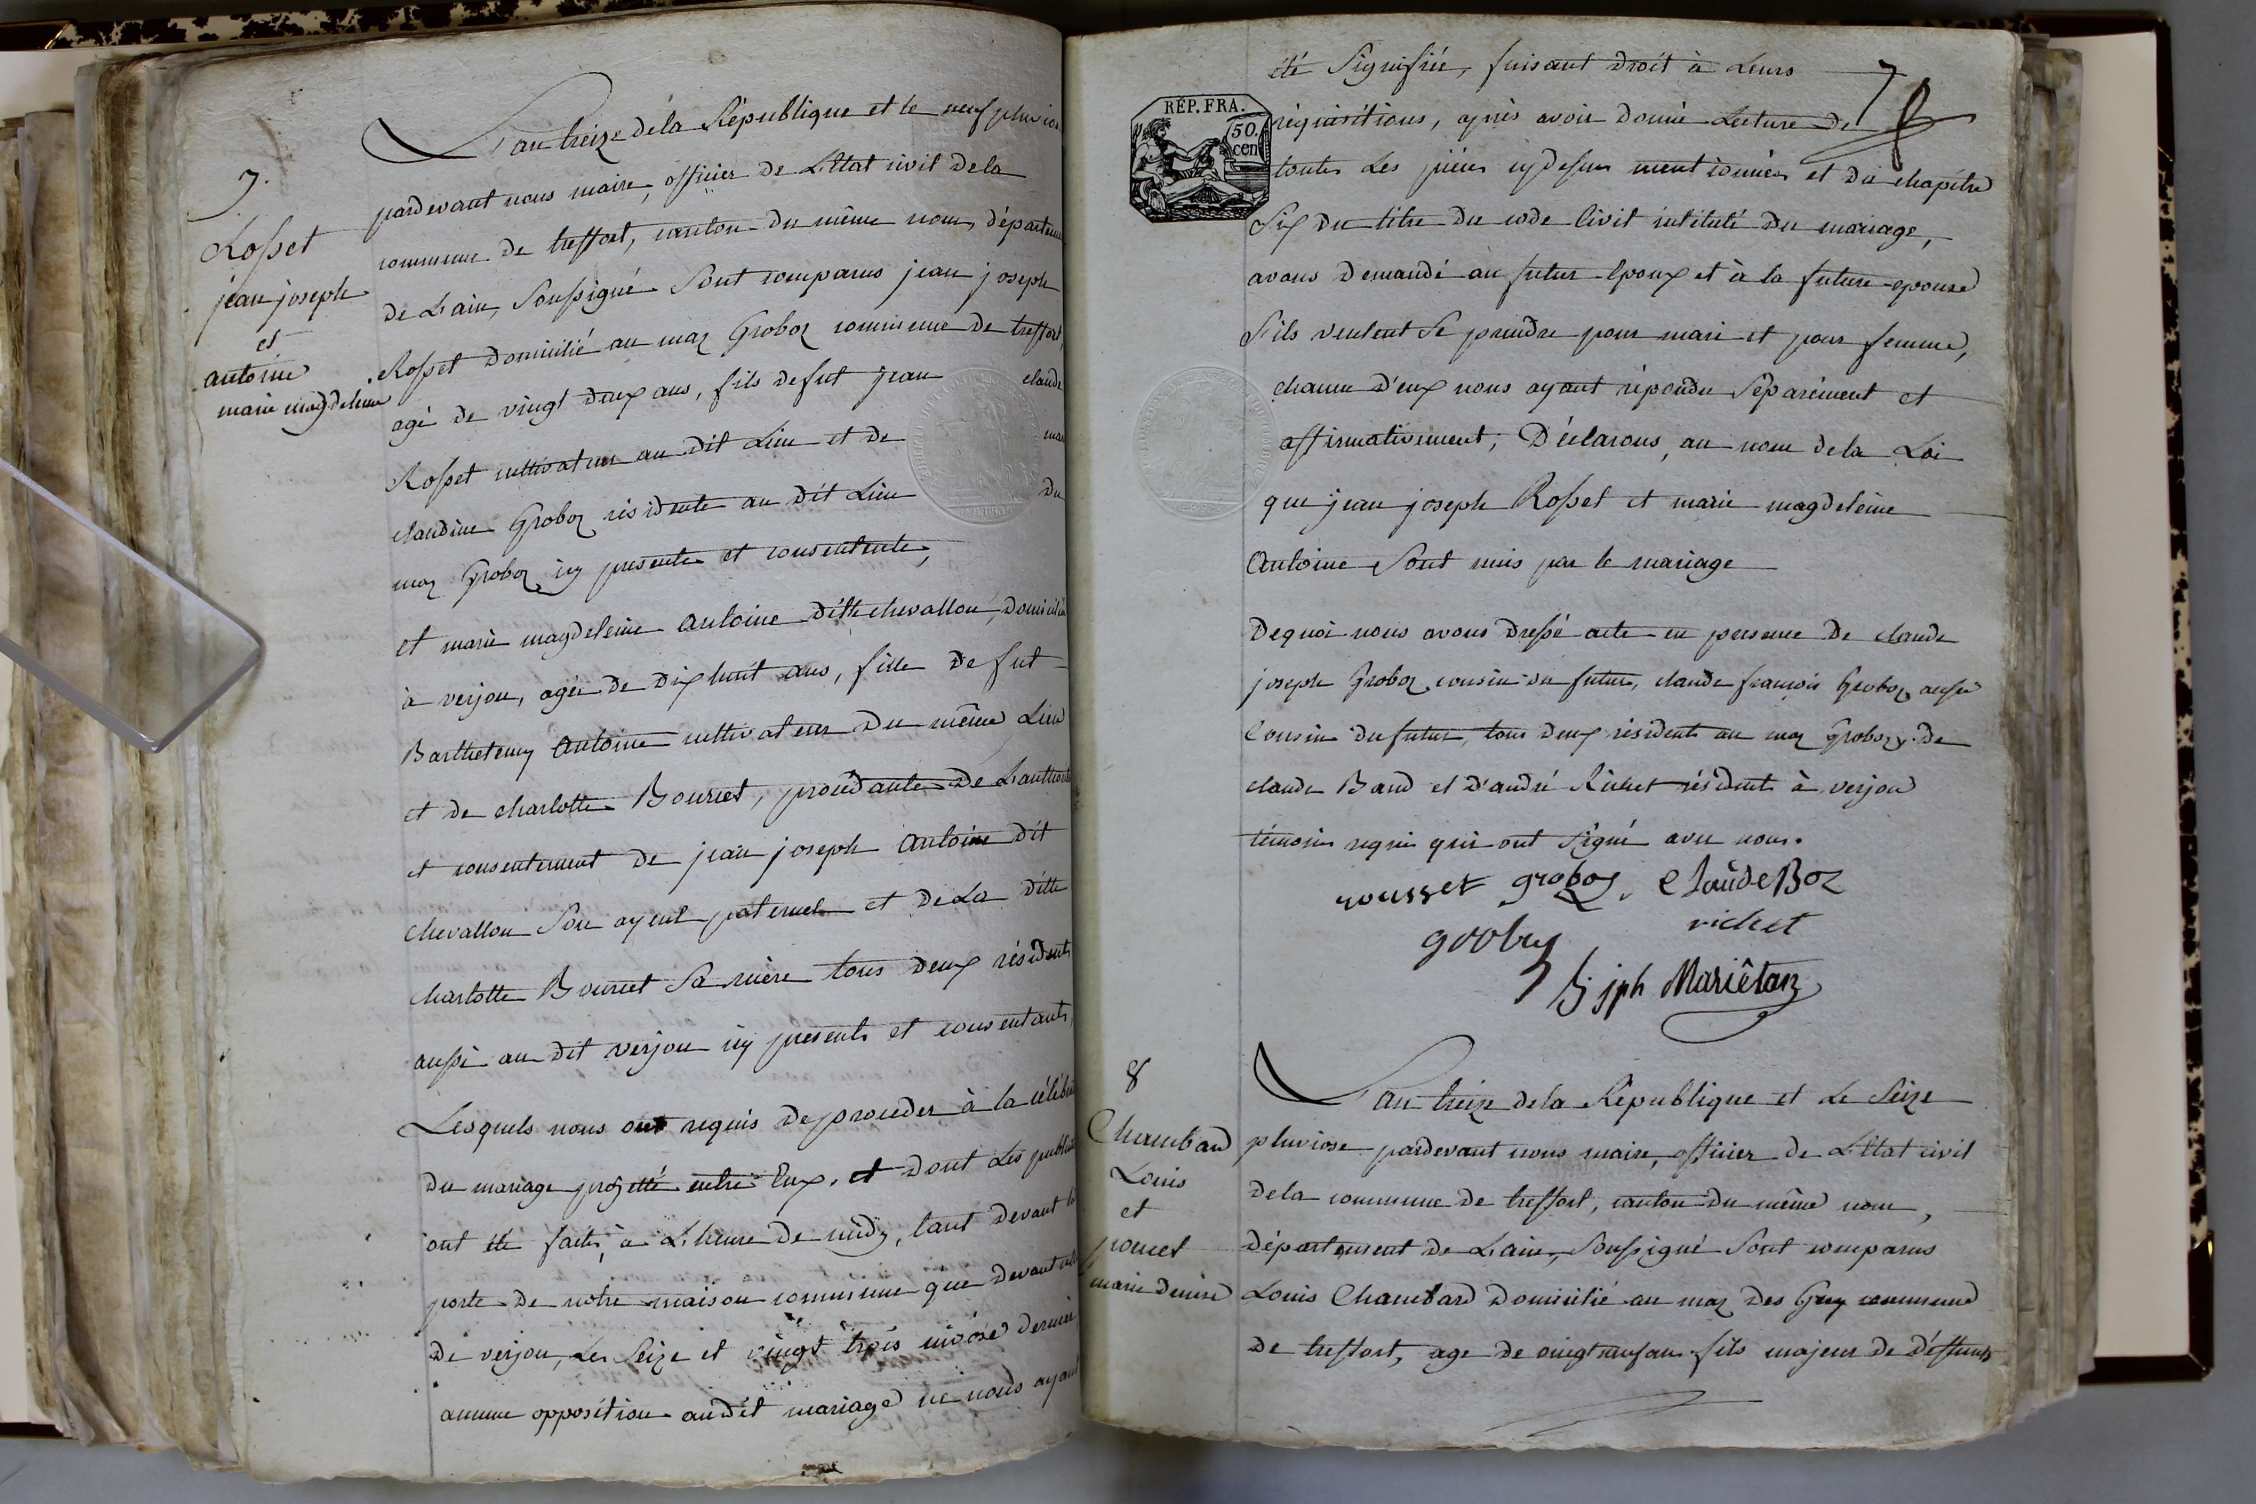 7.
Rosset
jean joseph
et
antoine
marie magdeleine
L'an treize de la République et le neuf pluvio
pardevant nous maire, officier de L'Etat civil de la
commune de treffort, canton du même nom, départem
de L'ain, Soussigné Sont comparus jean joseph
Rosset Domicilié au maz Groboz commune de treffort,
agé de vingt deux ans, fils de fut jean claude
Rosset cultivateur au dit Lieu et de
claudine Groboz résidente au dit Lieu du
maz Groboz icy presente et consentente,
et marie magdeleine antoine ditte chevallon, domicilié
à verjon, agée de Dix huit ans, fille de fut
Barthelemy antoine cultivateur du même Lieu
et de charlotte Bourcet, procédante de L'authorité
et consentement de jean joseph antoine dit
chevallon Son ayeul paternel et de La ditte
charlotte Bourcet Sa mère tous deux résidents
aussi au dit verjon icy presents et consentants,
Lesquels nous ont requis de procéder à la céléb
du mariage projetté entre Eux, et dont Les public
ont été faites à L'heure de midy, tant devant la
porte de notre maison commune que devant celle
de verjon, Les Seize et vingt trois nivose dernier
aucune opposition audit mariage ne nous ayant
RÉP. FRA.
50.
cen
été Signifiée, faisant droit à Leurs
réquisitions, après avoir donné Lecture de
toutes Les pièces cy dessus mentionnées et du chapitre
Six du titre du code Civil intitulé du mariage,
avons demandé au futur Epoux et à la future epouse
S'ils veulent Se prendre pour mari et pour femme,
chacun d'eux nous ayant répondu Séparément et
affirmativement, Déclarons, au nom de la Loi
que jean joseph Rosset et marie magdeleine
antoine Sont unis par le mariage
De quoi nous avons dressé acte en presence de claude
joseph Groboz cousin du futur, claude françois Groboz aussi
Cousin du futur, tous deux résidents au maz Groboz, de
claude Baud et d'andré Richet résidents à verjon
témoins requis qui ont Signé avec nous.
rousset groboz claude Boz
richet
Jph Mariétan
8
Chambard
Louis
et
poncet
marie denise
L'an treize de la République et Le Seize
pluviose pardevant nous maire, officier de L'Etat civil
de la commune de treffort, canton du même nom,
département de L'ain, Soussigné Sont comparus
Louis Chambard Domicilié au maz des Guy commune
de treffort, age de vingt neuf ans fils majeur de deffunts